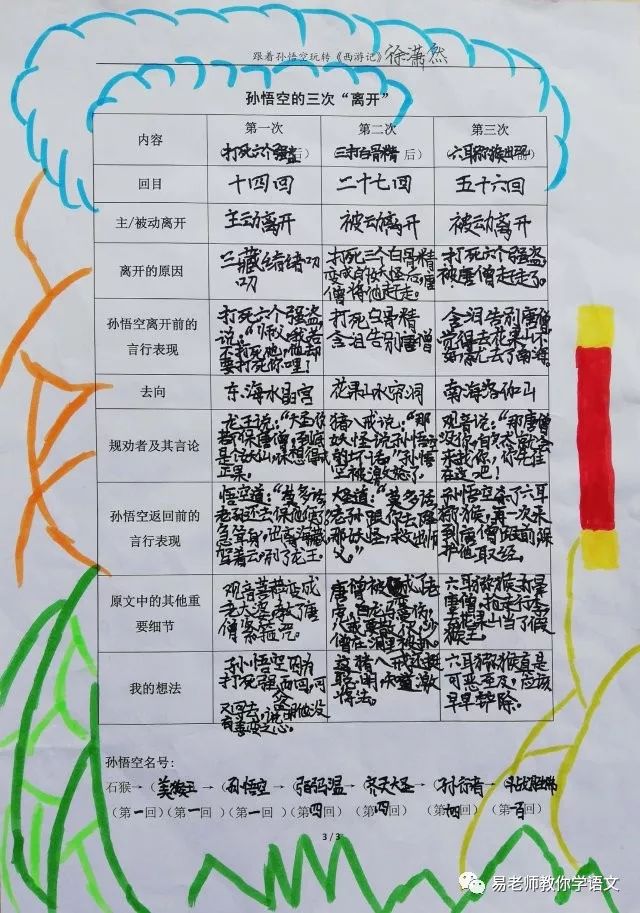 跟着孙悟空玩转《西游记》徐潇然
孙悟空的三次“离开”
内容
第一次
(打死六个强盗后)
第二次
(三打白骨精 后)
第三次
回目
十四回
二十七回
五十六回
主/被动离开
主动离开
被动离开
被动离开
离开的原因
三藏绪绪叨
叨
打死三个白骨精
僧将他赶走。
打死六个强盗
被唐僧赶走了。
孙悟空离开前的
言行表现
打死六个强盗,
说:“师父,我若
不打死他,他却
要打死你哩!
打死白骨精
含泪告别唐僧
含泪告别唐僧,
觉得去花果山不
好意思去了南海。
去向
东海水晶宫
花果山水帘洞
南海洛伽山
规劝者及其言论
龙王说:“大圣你
若不保唐僧,到底
是个妖仙,休想得成
正果。
猪八戒说:“那
妖怪说孙悟空
观音说:“那唐僧
没你,自
来找你,你先住
在这吧!
孙悟空返回前的
言行表现
悟空道:“莫多话,
老孙还去保他便了。
大圣道:“莫多话,
老孙跟你去降
那妖怪,救出师
父。”
孙悟空杀了六耳
猕猴,再一次来
到唐僧跟前保
护他取经。
原文中的其他重
要细节
观音菩萨变成
老太婆教了唐
僧紧箍咒。
唐僧被变成了老
虎,白龙马
六耳猕猴
唐僧,抢走行李
在花果山当了假
猴王
我的想法
孙悟空因为
打死强盗而回,可
又回去,说明他没有
猪八戒还挺
聪明,知道激
将法。
六耳猕猴真是
可恶至及,应该
早早铲除。
孙悟空名号:
石猴→(美猴王→(孙悟空→(弼马温→(齐天大圣→(孙行者→(斗战胜佛
(第一回)(第一回)(第一回)(第四回)(第四回)(第十四回)(第一百回)
3 / 3
易老师教你学语文